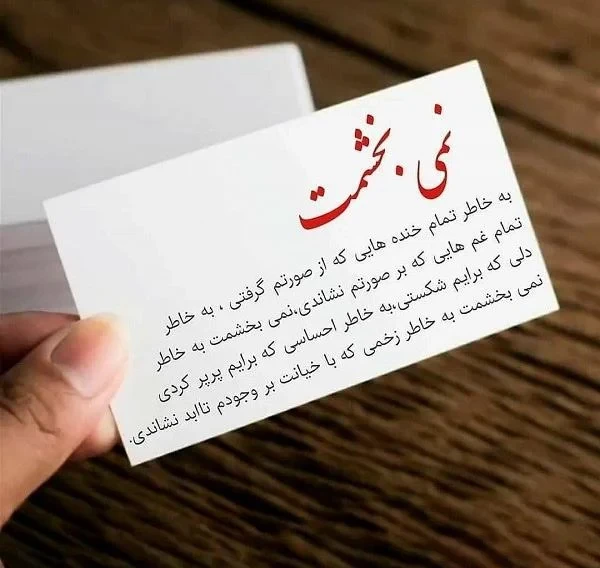 نمی بخشمت
به خاطر تمام خنده هایی که از صورتم گرفتی ، به خاطر
تمام غم هایی که بر صورتم نشاندی،نمی بخشمت به خاطر
دلی که برایم شکستی،به خاطر احساسی که برایم پرپر کردی
نمی بخشمت به خاطر زخمی که با خیانت بر وجودم تاابد نشاندی.